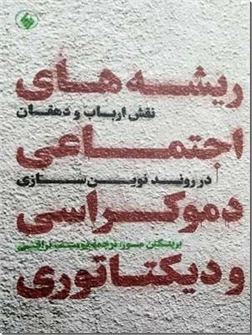 ریشه های
نقش ارباب و دهقان
اجتماعی
در روند نوین سازی
دموکراسی
برینگتن مور/ترجمه یوسف نراقی
و دیکتاتوری